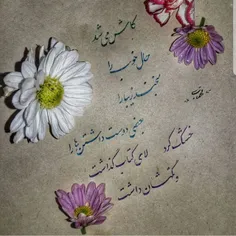 کاش می شد
حال خوب را
لبخند زیبا را
بعضی دوست داشتن ها را
خشک کرد
لای کتاب گذاشت
و نگهشان داشت